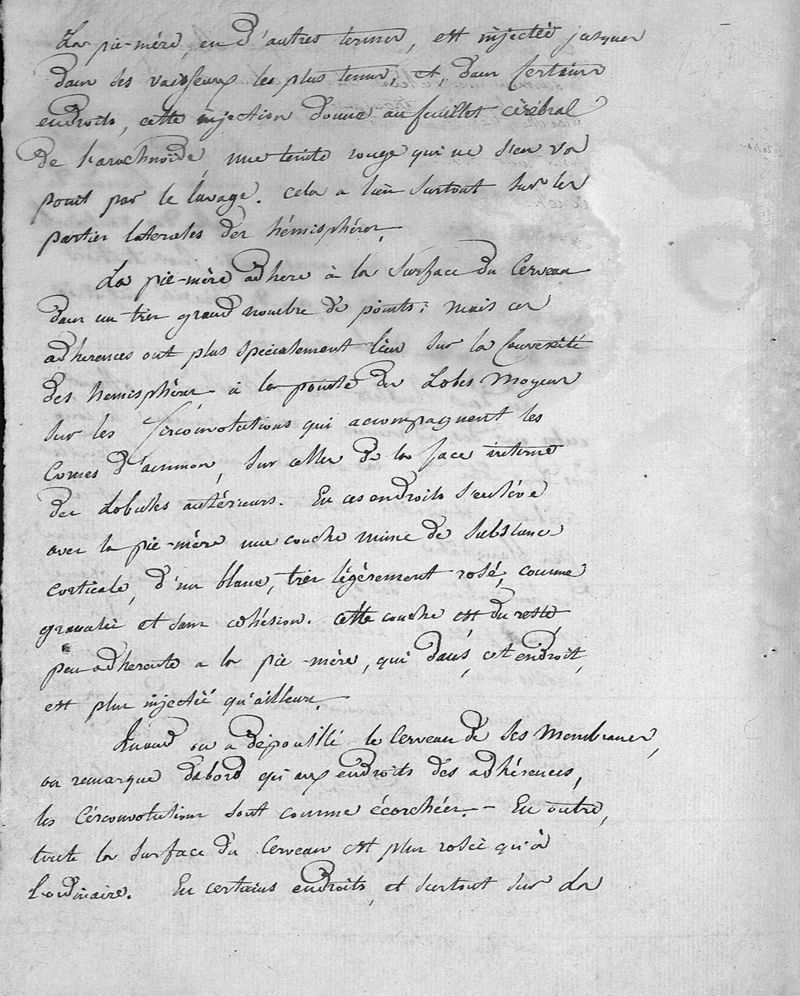 La pie-mére, en d'autres termes, est injectée jusques
dans ses vaisseaux les plus tenus, et, dans certains
endroits, cette injection donne au feuillet cérébral
de l'arachnoïde une teinte rouge qui ne s'en va
point par le lavage. Cela a lieu surtout sur les
parties laterales des hémisphères.
La pie-mère adhere à la surface du Cerveau
dans un très grand nombre de points; mais ces
adherences ont plus spécialement lieu sur la Convexité
des hémisphères à la pointe des Lobes Moyens
sur les Circonvolutions qui accompagnent les
Cornes d'ammon, sur celles de la face interne
des Lobules antérieurs. En ces endroits s'enlève
avec la pie-mère une couche mince de substance
corticale, d'un blanc, très légèrement rosé, comme
granulée et sans cohésion. Cette couche est du reste,
peu adherente a la pie-mère, qui dans, cet endroit,
est plus injectée qu'ailleurs.
Quand on a dépouillé le Cerveau de ses Membranes,
on remarque dabord qu'aux endroits des adhérences,
les Circonvolutions sont comme écorchées. – En outre,
toute la surface du Cerveau est plus rosée qu'à
l'ordinaire. En certains endroits, et surtout sur La